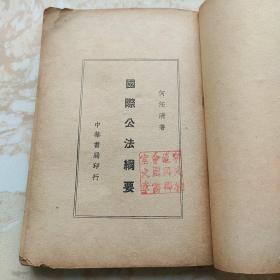 何任清著
國際公法綱要
中華書局印行